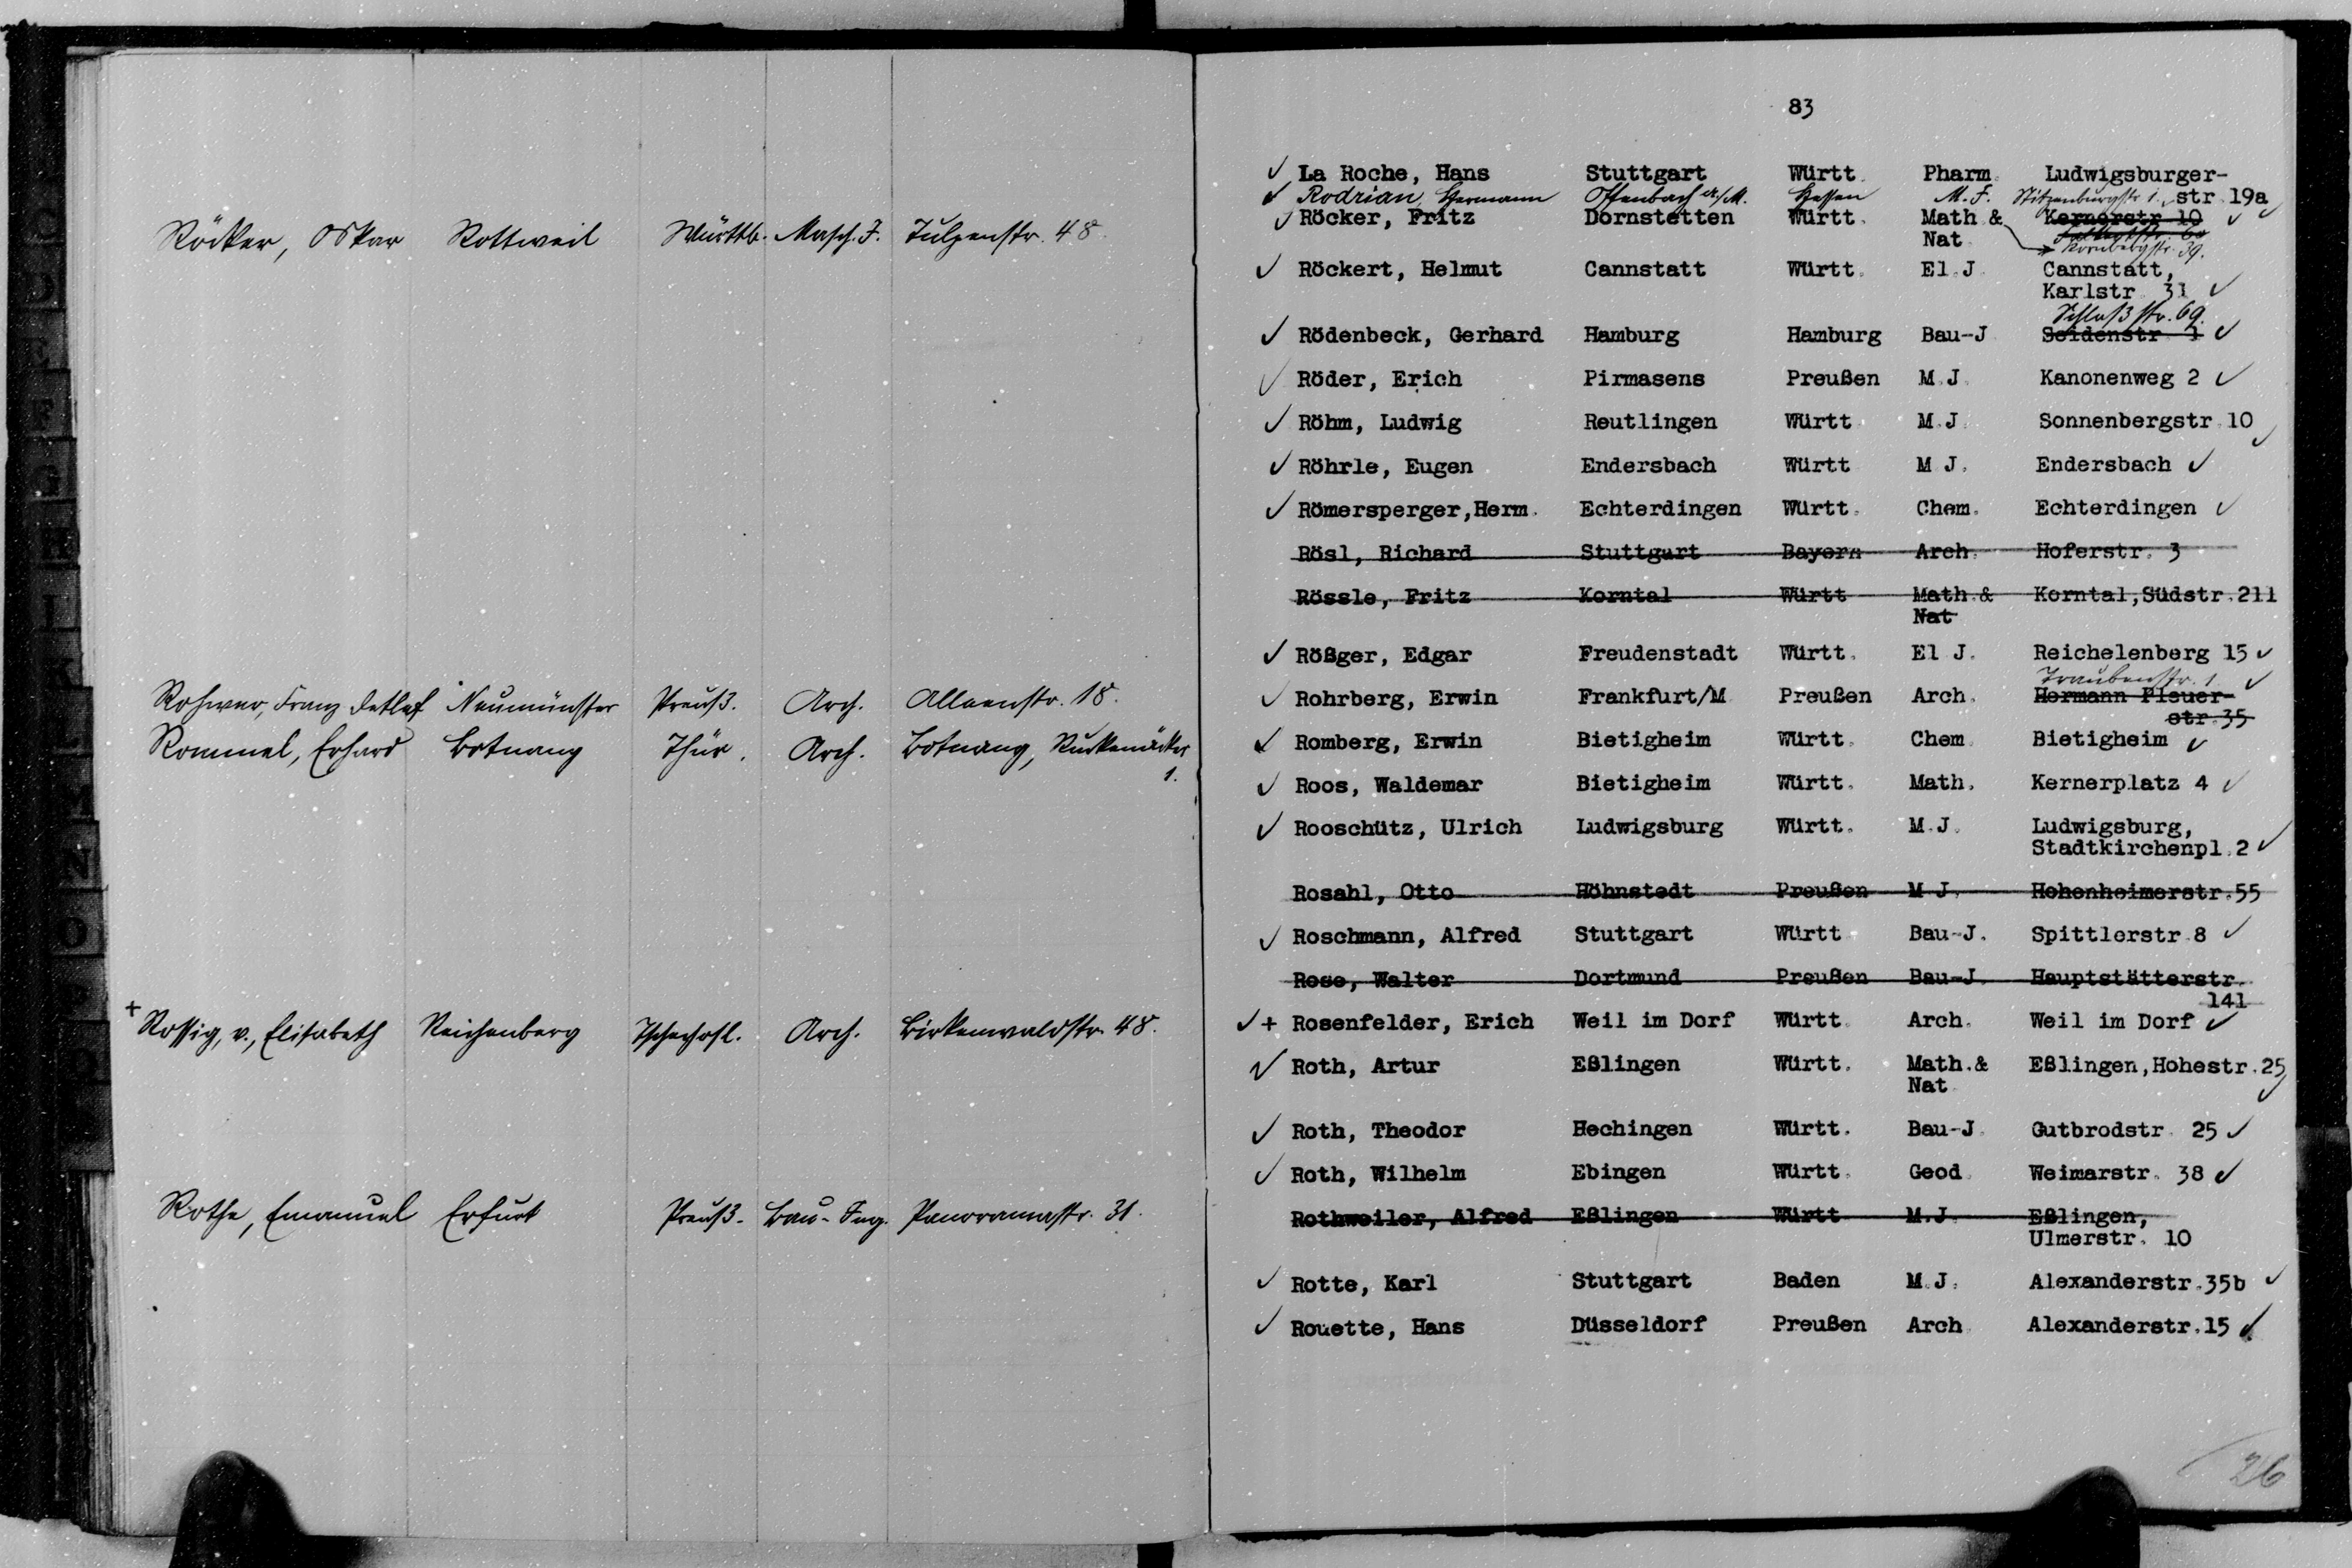 Röcker, Oskar Rottweil Württb. Masch.I. Tulpenstr. 48
Rohwer, Franz Detlef Neumünster Preuß. Arch. Alleenstr. 18.
Rommel, Erhard Botnang Thür. Arch. Botnang,
1.
+ Rossig, v., Elisabeth Reichenberg Tschechosl. Arch. Birkenwaldstr. 48.
Rothe, Emanuel Erfurt Preuß. Bau-Ing. Panoramastr. 31.
83
✓ La Roche, Hans Stuttgart Württ. Pharm. Ludwigsburger-
✓ Rodrian, Hermann Offenbach a/M. Hessen M.I. Stitzenburgstr 1. str. 19a
✓ Röcker, Fritz Dornstetten Württ. Math & Kernerstr 10 ✓ ✓
Nat
39.
✓ Röckert, Helmut Cannstatt Württ. El.J. Cannstatt,
Karlstr. 31 ✓
Schloßstr. 69.
✓ Rödenbeck, Gerhard Hamburg Hamburg Bau-J Seidenstr 1 ✓
✓ Röder, Erich Pirmasens Preußen M.J. Kanonenweg 2 ✓
✓ Röhm, Ludwig Reutlingen Württ M.J. Sonnenbergstr.10 ✓
✓ Röhrle, Eugen Endersbach Württ M J. Endersbach ✓
✓ Römersperger,Herm. Echterdingen Württ. Chem. Echterdingen ✓
Rösl, Richard Stuttgart Bayern Arch. Hoferstr. 3
Rössle, Fritz Korntal Württ Math.& Korntal,Südstr.211
Nat
✓ Rößger, Edgar Freudenstadt Württ. El J. Reichelenberg 15 ✓
Traubenstr. 1. ✓
✓ Rohrberg, Erwin Frankfurt/M Preußen Arch. Hermann Pleuer-
str.35
✓ Romberg, Erwin Bietigheim Württ. Chem. Bietigheim ✓
✓ Roos, Waldemar Bietigheim Württ. Math. Kernerplatz 4 ✓
✓ Rooschütz, Ulrich Ludwigsburg Württ. M.J. Ludwigsburg,
Stadtkirchenpl.2 ✓
Rosahl, Otto Höhnstedt Preußen M J. Hohenheimerstr.55
✓ Roschmann, Alfred Stuttgart Württ Bau-J. Spittlerstr.8 ✓
Rose, Walter Dortmund Preußen Bau-J Hauptstätterstr.
141
✓ + Rosenfelder, Erich Weil im Dorf Württ. Arch. Weil im Dorf ✓
✓ Roth, Artur Eßlingen Württ. Math.& Eßlingen,Hohestr.25
Nat ✓
✓ Roth, Theodor Hechingen Württ. Bau-J. Gutbrodstr. 25 ✓
✓ Roth, Wilhelm Ebingen Württ. Geod. Weimarstr. 38 ✓
Rothweiler, Alfred Eßlingen Württ M.J. Eßlingen,
Ulmerstr. 10
✓ Rotte, Karl Stuttgart Baden M.J. Alexanderstr.35b ✓
✓ Rouette, Hans Düsseldorf Preußen Arch Alexanderstr.15 ✓
26